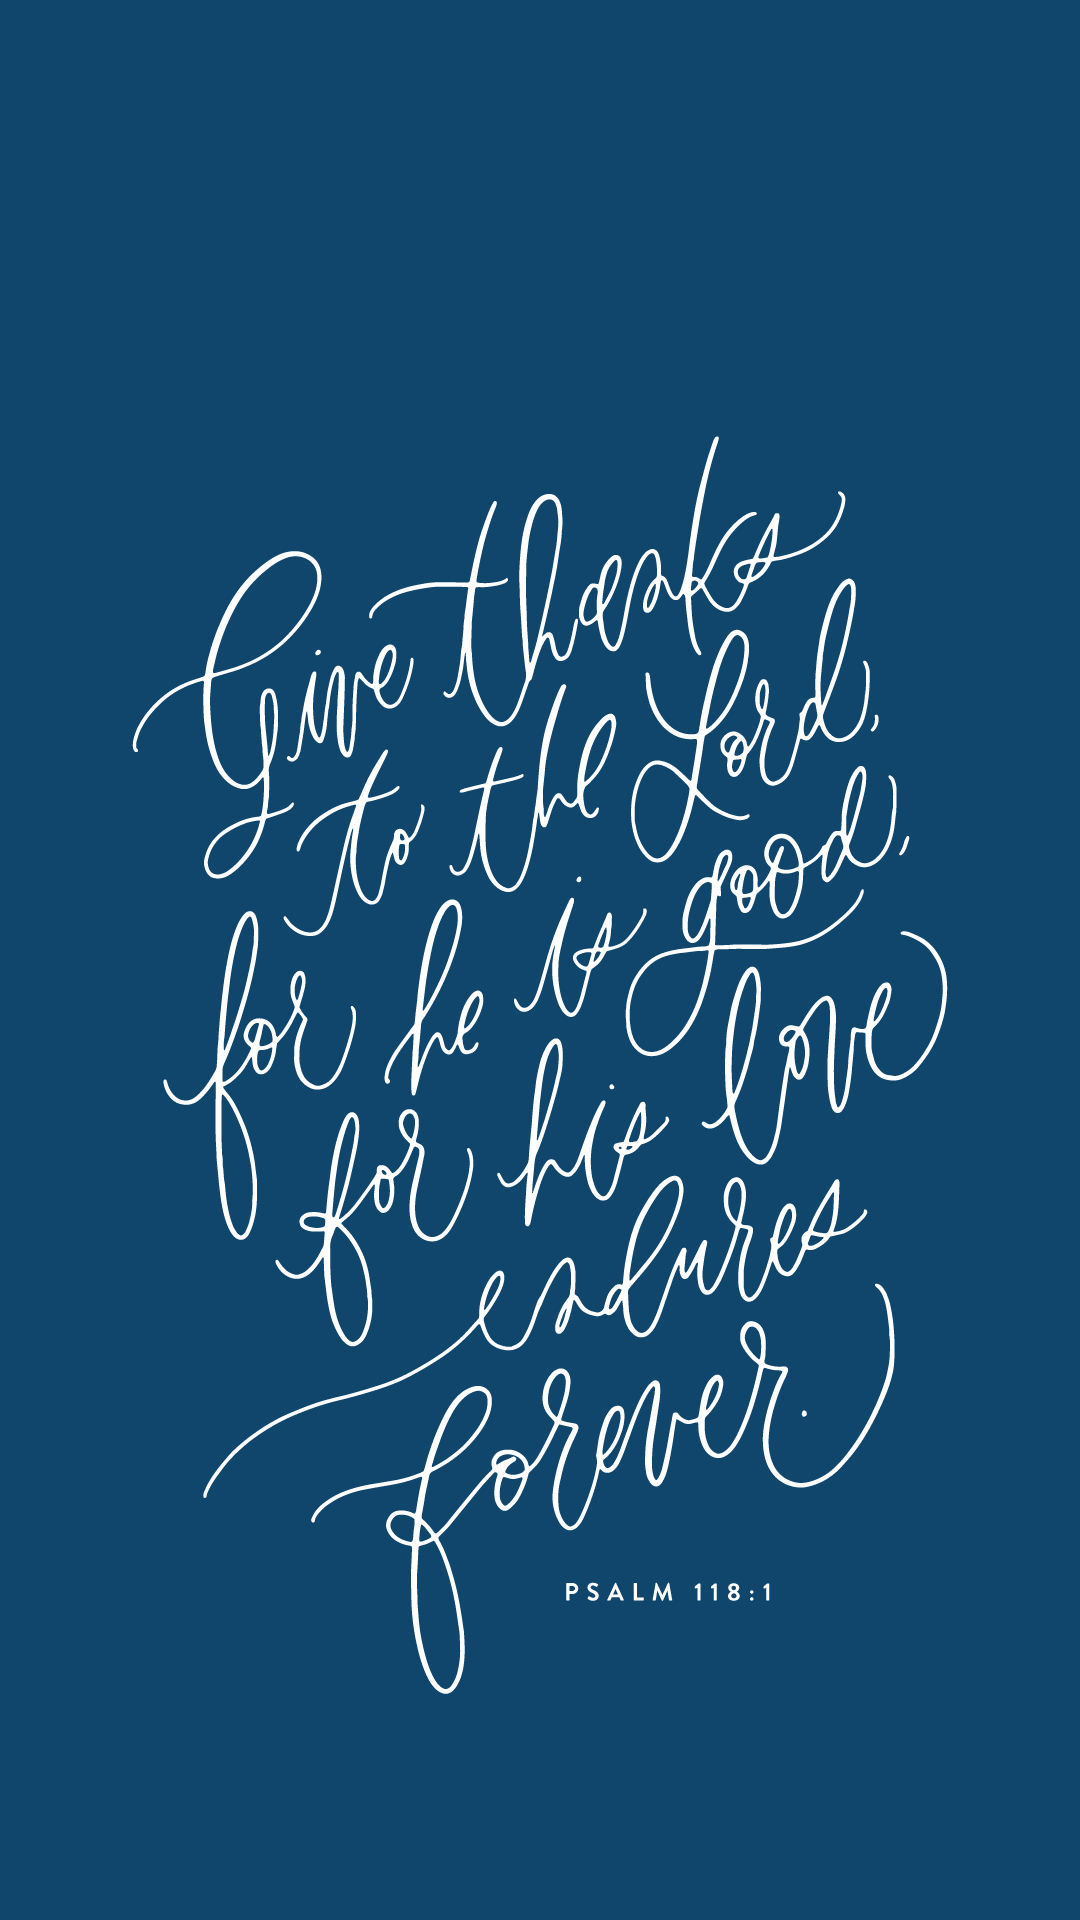 Give thanks
to the Lord,
for he is good,
for his love
endures
forever.
PSALM 118:1